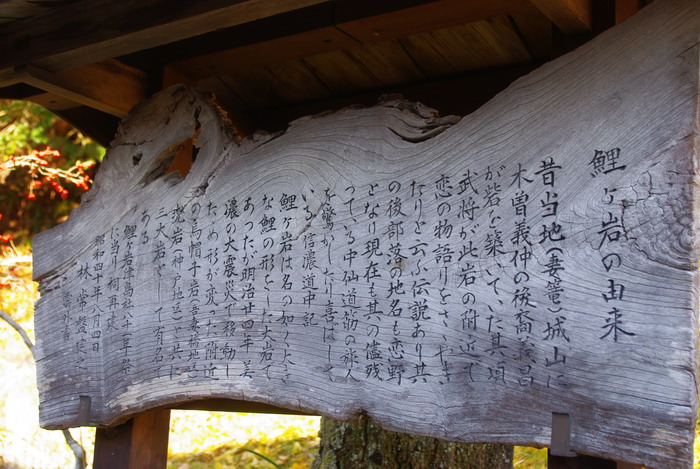 鯉ヶ岩の由来
昔当地(妻篭)城山に
木曽義仲の後裔義昌
が砦を築いていた其頃
武将が此岩の附近で
恋の物語りをさゝやき
たりと云ふ伝説あり其
の後部落の地名も恋野
となり現在も其の儘残
っている中仙道筋の旅人
を驚かしたり喜ばして
いる 信濃道中記
鯉ヶ岩は名の如く大き
な鯉の形をした大岩で
あったが明治廿四年美
濃の大震災で移動し
ため形が変った附近
の烏帽子岩
岩(神戸地区)と共に
三大岩として有名で
ある
鯉ヶ岩津島社八十年祭
に当り祠再建
昭和四十年八月四日
林 常盤